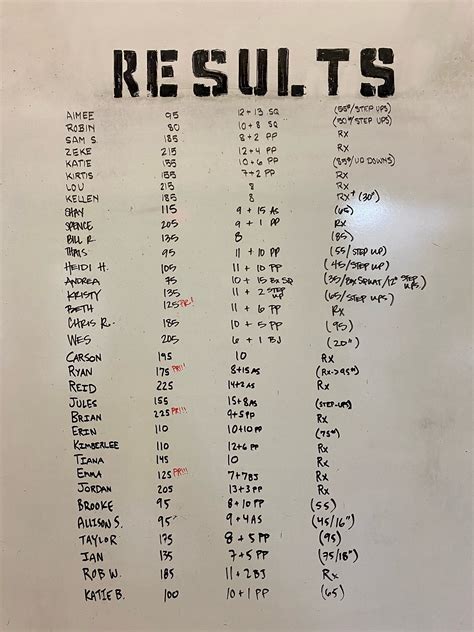 RESULTS
AIMEE 95 12+13 SQ (55#/STEP UPS)
ROBIN 80 10+8 SQ (50#/STEP UPS)
SAM S 185 8+2 PP Rx
ZEKE 215 12+4 PP Rx
KATIE 155 10+6 PP (85#/UP DOWNS)
KIRTIS 155 7+2 PP Rx
LOU 215 8 Rx
KELLEN 185 8 Rx+ (30")
SHAY 115 9+15 AS (65)
SPENCE 205 9+1 PP Rx
BILL R. 135 8 (85)
THAIS 95 11+10 PP (55/STEP UP)
HEIDI H. 105 11+10 PP (45/STEP UP)
ANDREA 75 10+15 BX SQ (35/BOX SQUAT/12" STEP UPS)
KRISTY 135 11+2 STEP UP (65/STEP UPS)
BETH 125 PR! 11+6 PP Rx
CHRIS R. 185 10+5 PP (95)
WES 205 6+1 BJ (20")
CARSON 195 10 Rx
RYAN 175 PR!!! 8+15 AS (Rx->95#)
REID 225 14+2 AS Rx
JULES 155 15+8 AS (STEP-UPS)
BRIAN 225 PR!!! 9+5 PP Rx
ERIN 110 10+10 PP (75#)
KIMBERLEE 110 12+6 PP Rx
TIANA 145 10 Rx
EMMA 125 PR!!! 7+7 BJ Rx
JORDAN 205 13+3 PP Rx
BROOKE 95 8+10 PP (55)
ALLISON S. 95 9+4 AS (45/16")
TAYLOR 175 8+5 PP (95)
IAN 135 7+5 PP (75/18")
ROB W. 185 11+2 BJ Rx
KATIE B. 100 10+1 PP (65)